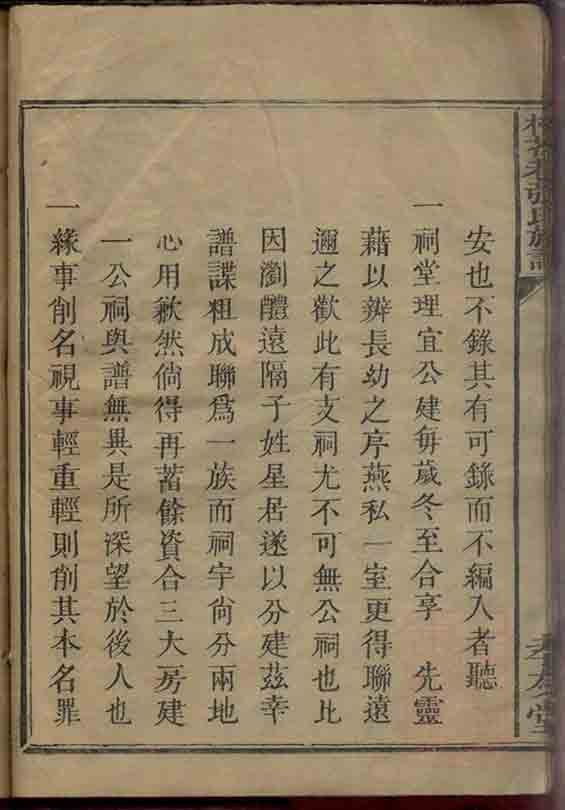 張氏族譜
孝友堂
安也不錄其有可錄而不編入者聽
一祠堂理宜公建每歲冬至合享 先靈
藉以辨長幼之序燕私一室更得聯遠
邇之歡此有支祠尤不可無公祠也比
因瀏醴遠隔子姓星居遂以分建茲幸
譜諜粗成聯爲一族而祠宇尙分兩地
心用歉然倘得再蓄餘資合三大房建
一公祠與譜無異是所深望於後人也
一緣事削名視事輕重輕則削其本名罪